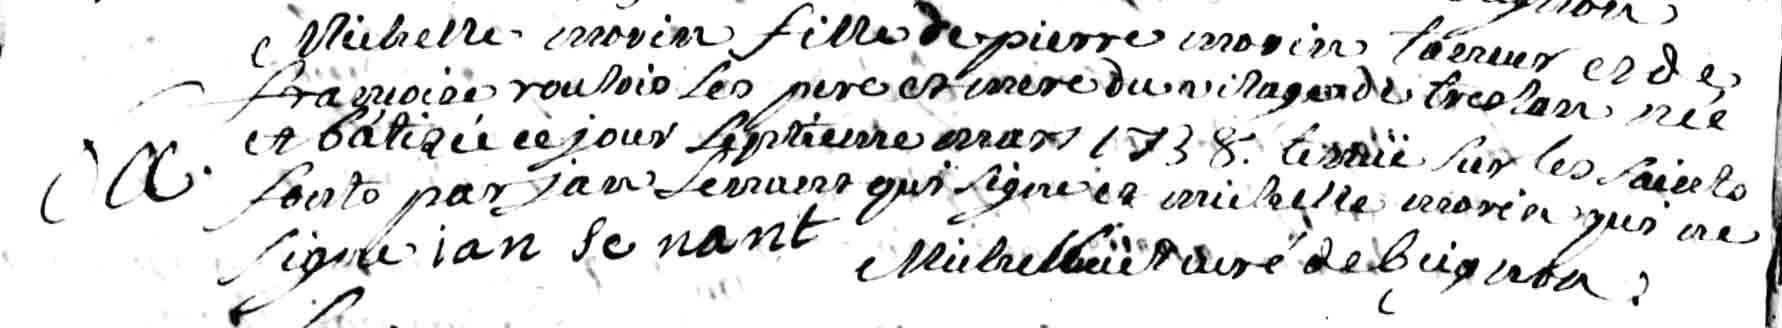 Michelle morin fille de pierre morin tanneur et de
françoise roulois ses pere et mere du vilage de treslan née
et bâtizée ce jour septieme mars 1738. tenüe sur les saints
fonts par jan senant qui signe et michelle morin qui ne
signe ian se nant Michel curé de Guignon